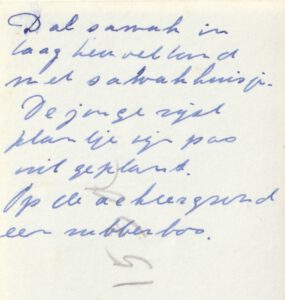 Dal sawah in
laag heuvelland
met sawahhuisje.
De jonge rijst
plantje zijn pas
uit geplant.
Op de achtergrond
een rubberbos.